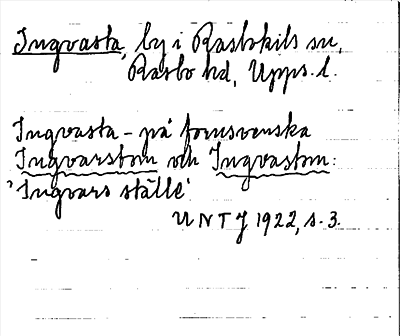 Ingvasta, by i Rasbokils sn,
Rasbo hd, Upps. l.
Ingvasta - på fornsvenska
Ingvarstom och Ingvastom:
'Ingvars ställe'
UNTJ 1922, s. 3.